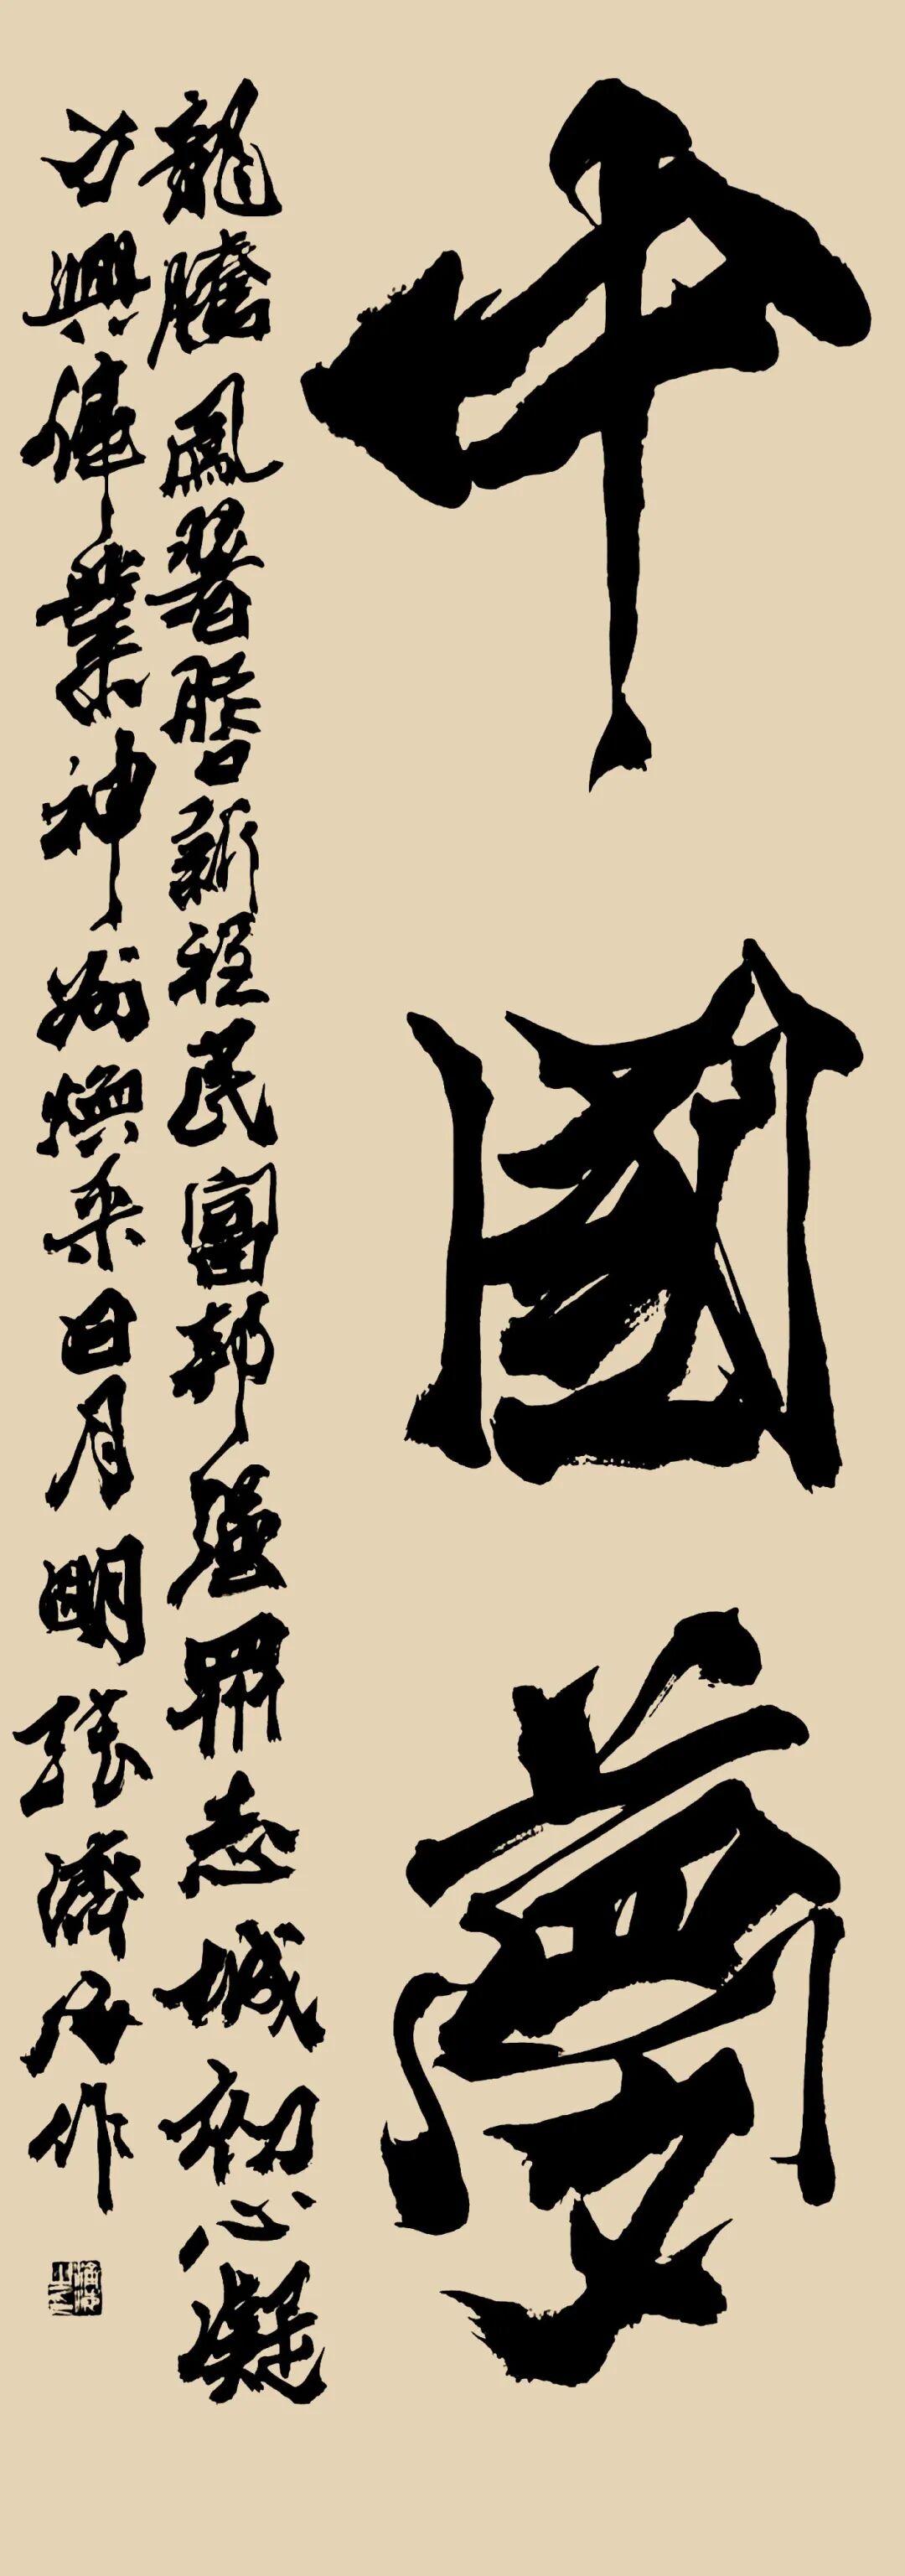 中國夢
龍騰鳳翥啓新程民富邦強眾志城初心凝
力興偉業神州煥采日月明張濟作